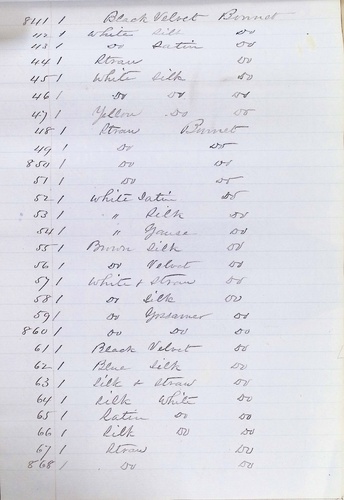 841 / Black Velvet Bonnet
42 / White Silk Do
43 / Do Satin Do
44 / Straw Do
45 / White Silk Do
46 / Do Do Do
47 / Yellow Do Do
48 / Straw Bonnet
49 / Do Do
850 / Do Do
51 / Do Do
52 / White Satin Do
53 / " Silk Do
54 / " Gause Do
55 / Brown Silk Do
56 / Do Velvet Do
57 / White & Straw Do
58 / Do Silk Do
59 / Do Gossamer Do
860 / Do Do Do
61 / Black Velvet Do
62 / Blue Silk Do
63 / Silk & Straw Do
64 / Silk White Do
65 / Satin Do Do
66 / Silk Do Do
67 / Straw Do
868 / Do Do